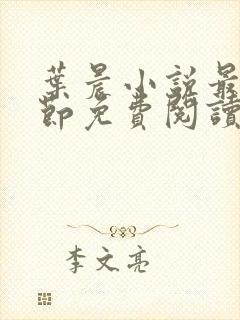 葉晨小說最
節免費閱讀
李文亮